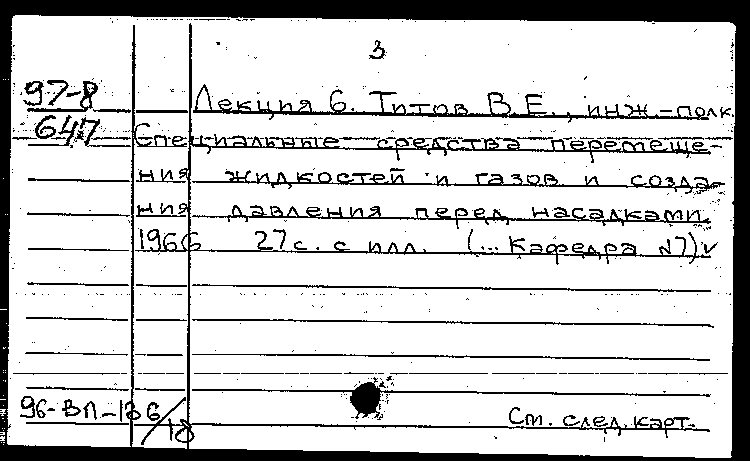 3
97-8 Лекция 6. Титов В.Е., инж.-полк.
647 Специальные средства перемеще-
ния жидкостей и газов и созда-
ния давления перед насадками.
1966 27 с. с илл. (... Кафедра №7)
96-ВП-136/18 См. след. карт.